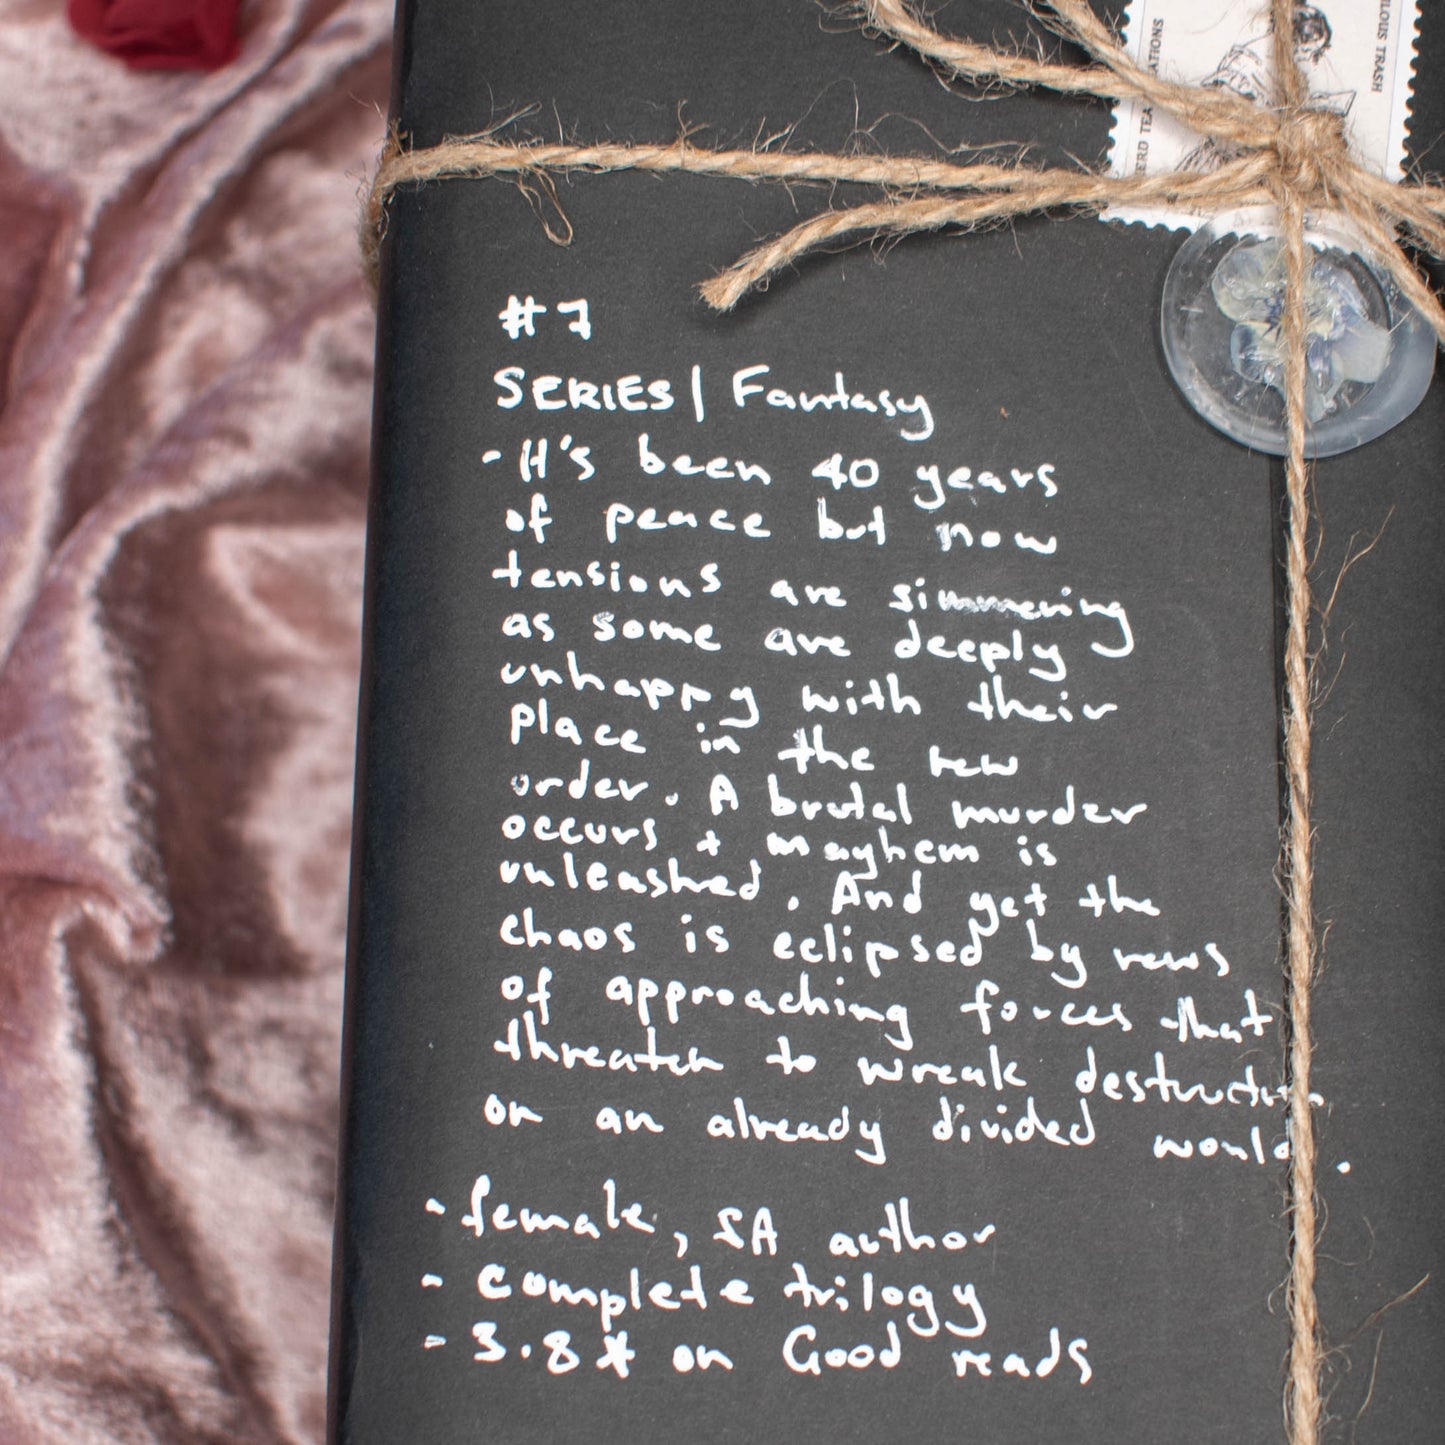 ATIONS
ERD TEA
ILOUS TRASH
#7
SERIES | Fantasy
- It's been 40 years
of peace but now
tensions are simmering
as some are deeply
unhappy with their
place in the new
order. A brutal murder
occurs + mayhem is
unleashed. And yet the
chaos is eclipsed by news
of approaching forces that
threaten to wreak destruction
on an already divided world.
- female, SA author
- complete trilogy
- 3.8* on Good reads